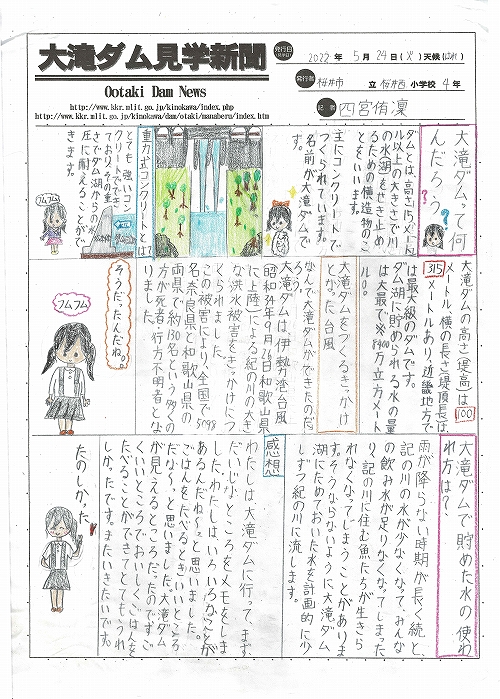 大滝ダム見学新聞
Ootaki Dam News
http://www.kkr.mlit.go.jp/kinokawa/index.php
http://www.kkr.mlit.go.jp/kinokawa/dam/otaki/manaberu/index.htm
発行日
2022年5月24日(火)天候(はれ)
発行者 桜井市立桜井西小学校4年
記者 四宮侑凜
大滝ダムって何
んだろう?
?
ダムとは、高さ15メート
ル以上の大きさで川
の水(湖)をせき止め
るための構造物のこ
とをいいます。
主にコンクリートで
つくられています。
名前が大滝ダムで
す。
重力式コンクリートとは?
とても強いコン
クリートでできて
おり、その重
さでダム湖からの水
圧に耐えることがで
きます。
フムフム
大滝ダムの高さ(堤高)は100
メートル、横の長さ(堤頂長)は
315メートルあり、近畿地方で
は最大級のダムです。
ダム湖に貯められる水の量
は最大で※8400万立方メート
ル。
大滝ダムをつくるきっかけ
となった台風
なんで、大滝ダムができたのだ
ろう。
大滝ダムは、伊勢湾台風
(昭和34年9月26日和歌山県
に上陸)による紀の川の大き
な洪水被害をきっかけにつ
くられました。
この被害により、全国で5098
名、奈良県と和歌山県の
両県で約130名という多くの
方が死者・行方不明者とな
りました。
そうだったんだね。
フムフム
大滝ダムで貯めた水の使わ
れ方は?
雨が降らない時期が長く続と、
紀の川の水が少なくなって、みんな
の飲み水が足りなくなってしまった
り、紀の川に住む魚たちが生きら
れなくなってしまうことがありま
す。そうならないように大滝ダム
湖にためておいた水を計画的に少
しずつ紀の川に流します。
感想
わたしは大滝ダムに行って、まず、
だいじなところをメモをしま
した。わたしはいろいろなことが
あるんだね〜っと思いました。
ごはんをたべるときいいところ
だな〜っと思いました。大滝ダム
が見えるところだったのですご
くいいところでおいしくごはんを
たべることができてとてもうれ
しかったです。またいきたいです。
たのしかった